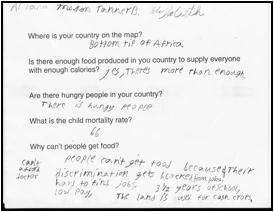 Mason Tanner B.
Where is your country on the map?
Bottom tip of Africa
Is there enough food produced in you country to supply everyone
with enough calories? yes, Theres more than enough
Are there hungry people in your country?
There is hungry people
What is the child mortality rate?
66
Why can't people get food?
people can't get food because Their
can't afford doctor
discrimination gets blocked from jobs!
hard to find jobs 3½ years of school,
low pay, The land is used for cash crops